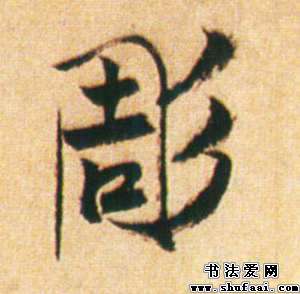 彫
书法爱网
www.shufaai.com